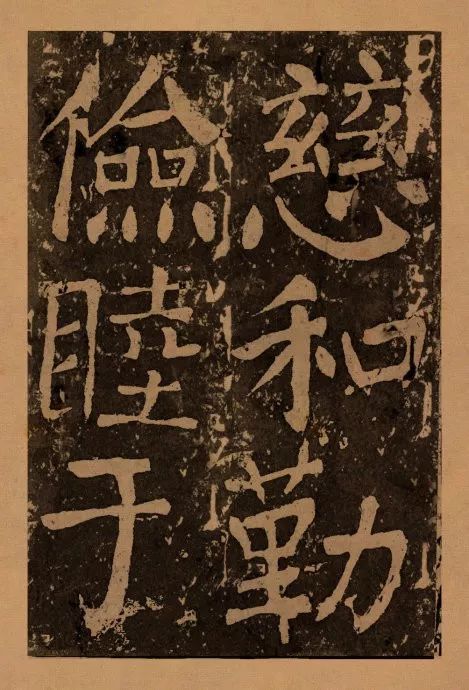 慈和勤
儉睦于